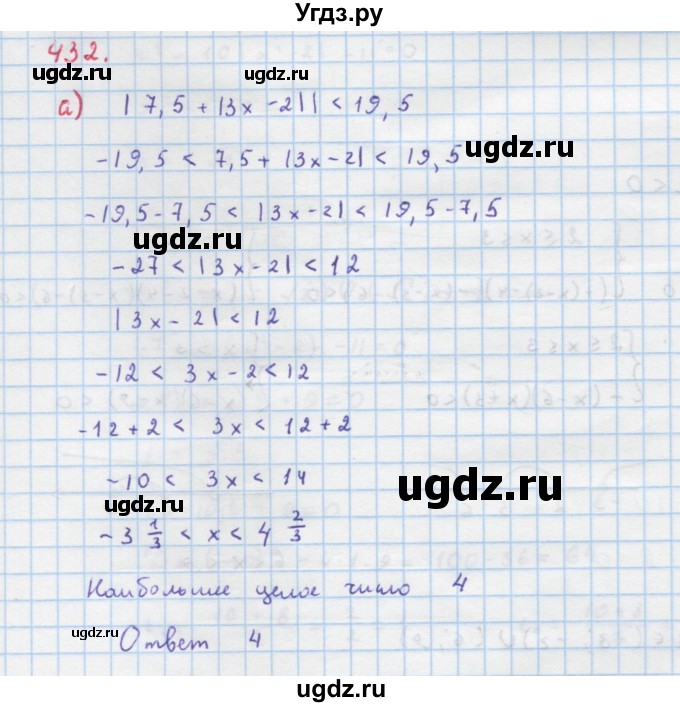 Угдз.ру
432.
ugdz.ru
ugdz.ru
а) |7,5 + |3x - 2|| < 19,5
-19,5 < 7,5 + |3x - 2| < 19,5
ugdz.ru
-19,5 - 7,5 < |3x - 2| < 19,5 - 7,5
ugdz.ru
-27 < |3x - 2| < 12
|3x - 2| < 12
-12 < 3x - 2 < 12
-12 + 2 < 3x < 12 + 2
-10 < 3x < 14
ugdz.ru
ugdz.ru
-3 1/3 < x < 4 2/3
Наибольшее целое число 4
ugdz.ru
Ответ 4
ugdz.ru